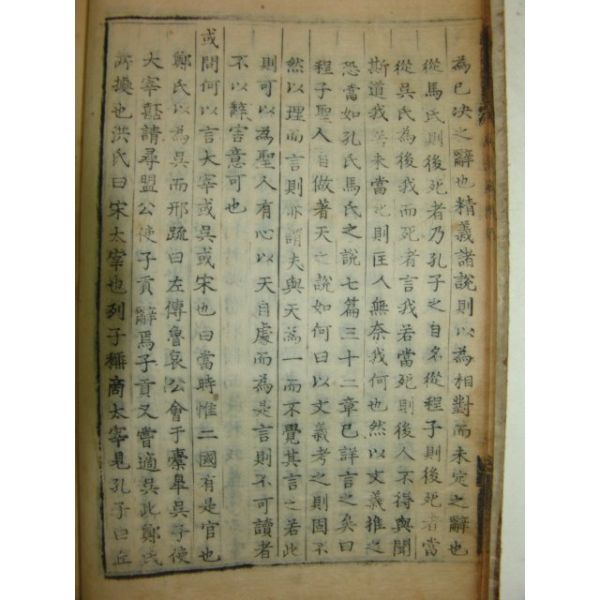 為已决之辭也精義諸說則以為相對而未定之辭也
從馬氏則後死者乃孔子之自名從程子則後死者當
從吳氏為後我而死者言我若當死則後人不得與聞
斯道我若未當死則匡人無奈我何也然以文義推之
恐當如孔氏馬氏之說七篇三十二章已詳言之矣曰
程子聖人自做著天之說如何曰以文義考之則固不
然以理而言則亦謂夫與天為一而不覺其言之若此
則可以為聖人有心以天自處而為是言則不可讀者
不以辭害意可也
或問何以言大宰或吳或宋也曰當時惟二國有是官也
鄭氏以為吳而邢疏曰左傳魯哀公會于橐皐吳子使
大宰嚭請尋盟公使子貢辭焉子貢又嘗適吳此鄭氏
所據也洪氏曰宋太宰也列子稱商太宰見孔子曰丘